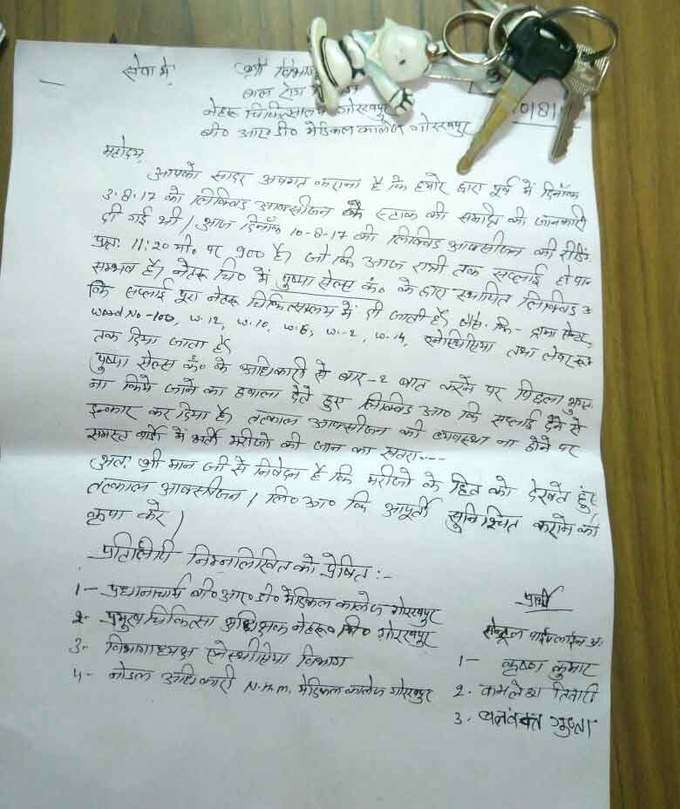 सेवा में,
श्री विभाग
बाल रोग
नेहरू चिकित्सालय गोरखपुर
बी० आर० डी० मेडिकल कालेज गोरखपुर
महोदय,
आपको सादर अवगत कराना है कि हमारे द्वारा पूर्व में दिनाँक
3.8.17 को लिक्विड आक्सीजन के स्टाक की समाप्ति की जानकारी
दी गई थी। आज दिनाँक 10-8-17 की लिक्विड आक्सीजन की रीडिंग
प्रातः 11:20 मी० पर 900 है। जो कि आज रात्री तक सप्लाई हो पाना
सम्भव है। नेहरू चि० में पुष्पा सेल्स कं० के द्वारा स्थापित लिक्विड
कि सप्लाई पूरा नेहरू चिकित्सालय में दी जाती है। जैसे कि- ट्रामा सेन्टर,
Ward No-100, W.12, W.10, W.6, W.-2, W.14, एनेस्थिसिया तथा लेबर रूम
तक दिया जाता है।
पुष्पा सेल्स कं० के अधिकारी से बार-2 बात करने पर पिछला भुगतान
ना किये जाने का हवाला देते हुए लिक्विड आ० कि सप्लाई देने से
इन्कार कर दिया है। तत्काल आक्सीजन की व्यवस्था ना होने पर
समस्त वार्डो में भर्ती मरीजो की जान का खतरा....
अतः श्री मान जी से निवेदन है कि मरीजो के हित को देखते हुए
तत्काल आक्सीजन / लि० आ० कि आपूर्ती सुनिश्चित कराने की
कृपा करें।
प्रतिलिपी निम्नलिखित को प्रेषित :-
1- प्रधानाचार्य बी० आर० डी० मेडिकल कालेज गोरखपुर
2- प्रमुख चिकित्सा अधिक्षक नेहरू चि० गोरखपुर
3- विभागाध्यक्ष एनेस्थीसिया विभाग
4- नोडल अधिकारी N.H.M. मेडिकल कालेज गोरखपुर
प्रार्थी
सेन्ट्रल पाईपलाईन
1- कृष्ण कुमार
2. कमलेश तिवारी
3. बलवन्त गुप्ता